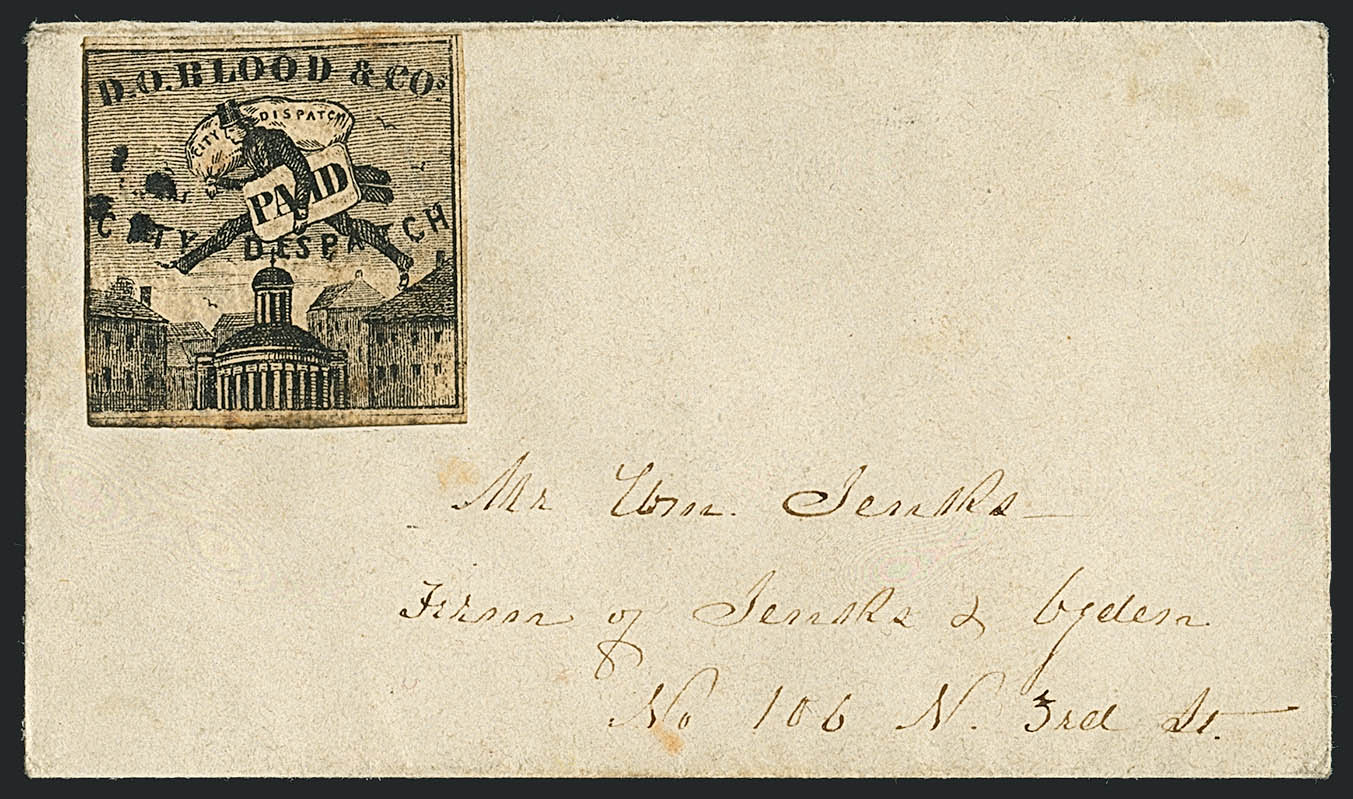 D.O. BLOOD & COs.
CITY DISPATCH
PAID
CITY DESPATCH
Mr Wm. Jenks
Firm of Jenks & Ogden
No 106 N. 3rd St.